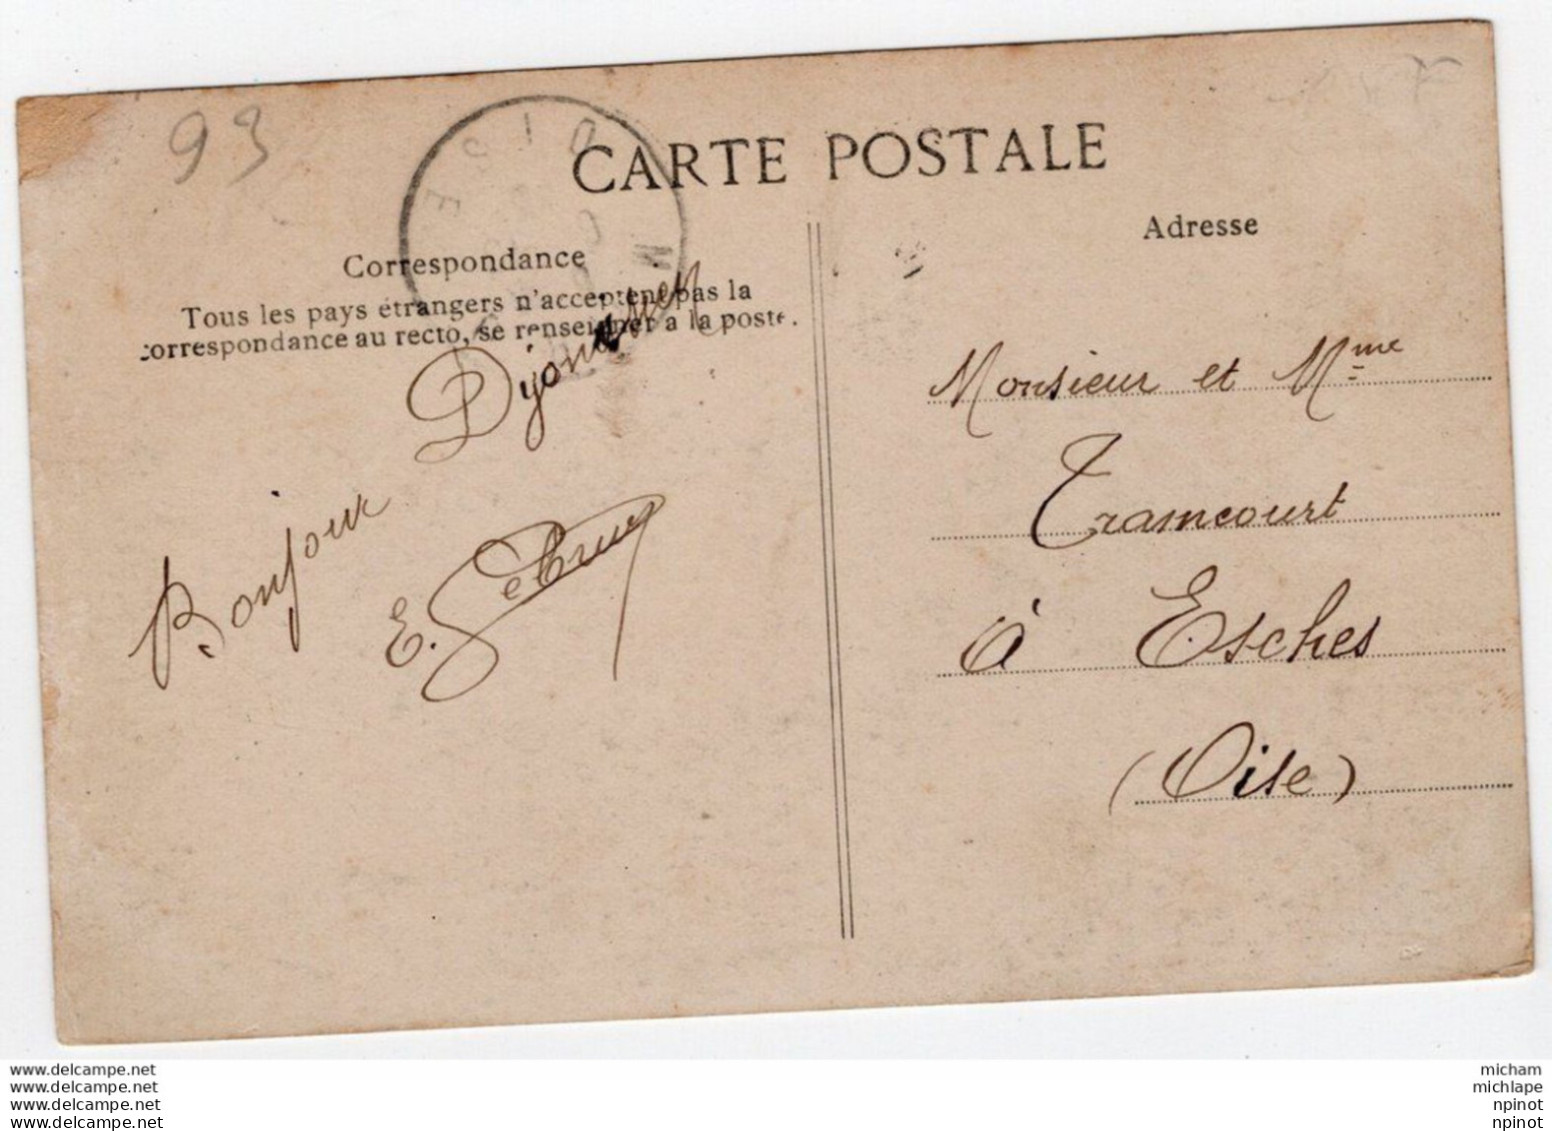 93
CARTE POSTALE
Correspondance
Tous les pays étrangers n'acceptent pas la
correspondance au recto, se renseigner a la poste.
Bonjour Dijonnier
E.
Adresse
Monsieur et Mme
Tramcourt
à Esches
(Oise)
www.delcampe.net
www.delcampe.net
www.delcampe.net
www.delcampe.net
micham
michlape
npinot
npinot